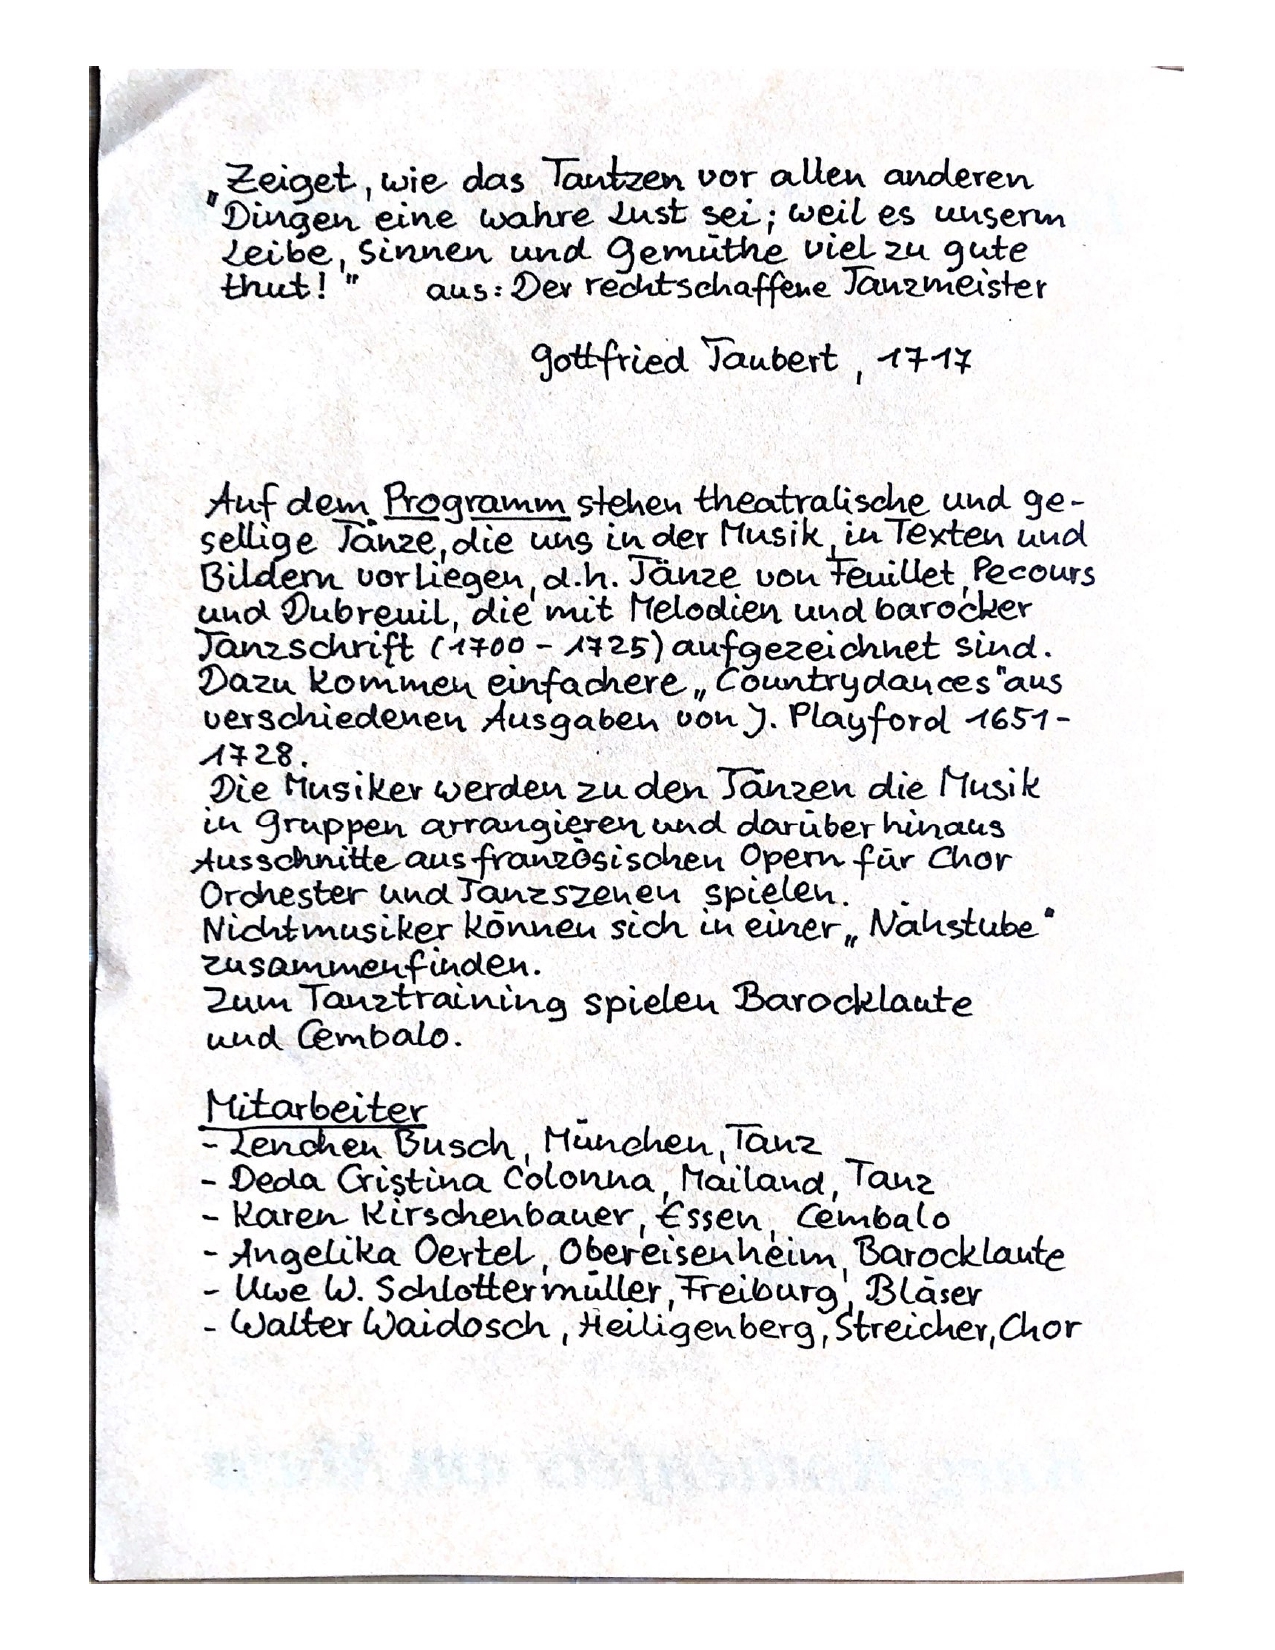 „Zeiget, wie das Tantzen vor allen anderen
Dingen eine wahre Lust sei; weil es unserm
Leibe, Sinnen und Gemüthe viel zu gute
thut!" aus: Der rechtschaffene Tanzmeister
Gottfried Taubert, 1717
Auf dem Programm stehen theatralische und ge-
sellige Tänze, die uns in der Musik, in Texten und
Bildern vorliegen, d.h. Tänze von Feuillet, Pecours
und Dubreuil, die mit Melodien und barocker
Tanzschrift (1700 - 1725) aufgezeichnet sind.
Dazu kommen einfachere „Countrydances" aus
verschiedenen Ausgaben von J. Playford 1651-
1728.
Die Musiker werden zu den Tänzen die Musik
in Gruppen arrangieren und darüber hinaus
Ausschnitte aus französischen Opern für Chor
Orchester und Tanzszenen spielen.
Nichtmusiker können sich in einer „Nähstube"
zusammenfinden.
Zum Tanztraining spielen Barocklaute
und Cembalo.
Mitarbeiter
- Lenchen Busch, München, Tanz
- Deda Cristina Colonna, Mailand, Tanz
- Karen Kirschenbauer, Essen, Cembalo
- Angelika Oertel, Obereisenheim, Barocklaute
- Uwe W. Schlottermüller, Freiburg, Bläser
- Walter Waidosch, Heiligenberg, Streicher, Chor